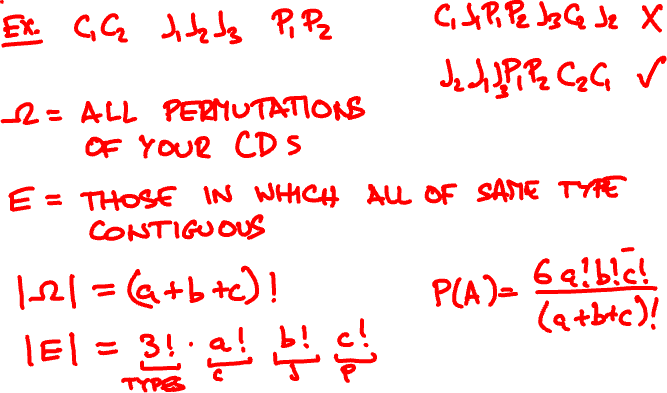 Ex. C₁C₂ J₁J₂J₃ P₁P₂
C₁J₁P₁P₂J₃C₂J₂ X
J₂J₁J₃P₁P₂C₂C₁ ✓
Ω = ALL PERMUTATIONS
OF YOUR CDS
E = THOSE IN WHICH ALL OF SAME TYPE
CONTIGUOUS
|Ω| = (a+b+c)!
|E| = 3! · a! b! c!
TYPES C J P
P(A) = 6 a!b!c! / (a+b+c)!